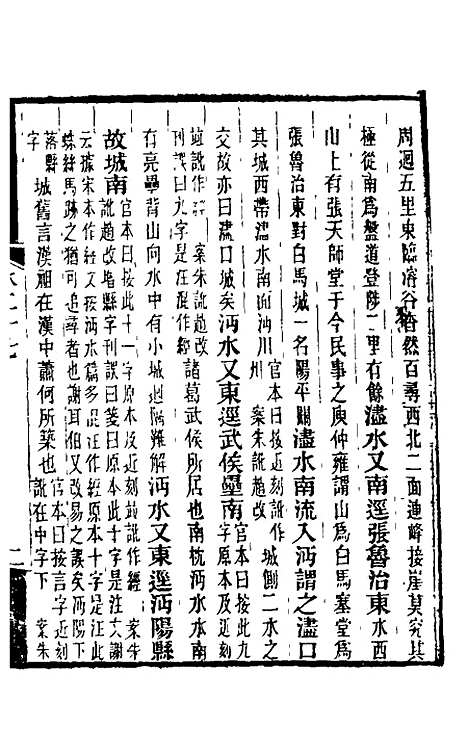 周迴五里東臨濬谷杳然百尋西北二面連峰接崖莫究其
極從南爲盤道登陟二里有餘濜水又南逕張魯治東水西
山上有張天師堂于今民事之庾仲雍謂山爲白馬塞堂爲
張魯治東對白馬城一名陽平關濜水南流入沔謂之濜口
其城西帶濜水南面沔川官本曰按近刻訛作州 案朱訛趙改城側二水之
交故亦曰濜口城矣沔水又東逕武侯壘南官本曰按此九字原本及近刻
並訛作經 案朱訛趙改刊誤曰九字是注混作經諸葛武侯所居也南枕沔水水南
有亮壘背山向水中有小城迴隔難解沔水又東逕沔陽縣
故城南官本曰按此十一字原本及近刻並訛作經 案朱訛趙改增縣字刊誤曰箋曰原本此十字是注文謝
云據宋本作經又按沔水篇多混注作經原本十字是注正與
蛛絲馬跡之猶可追尋者也謝耳伯又改易之誤矣沔陽下
落縣字城舊言漢祖在漢中蕭何所築也官本曰按言字近刻訛在中字下 案朱
水二十七
二